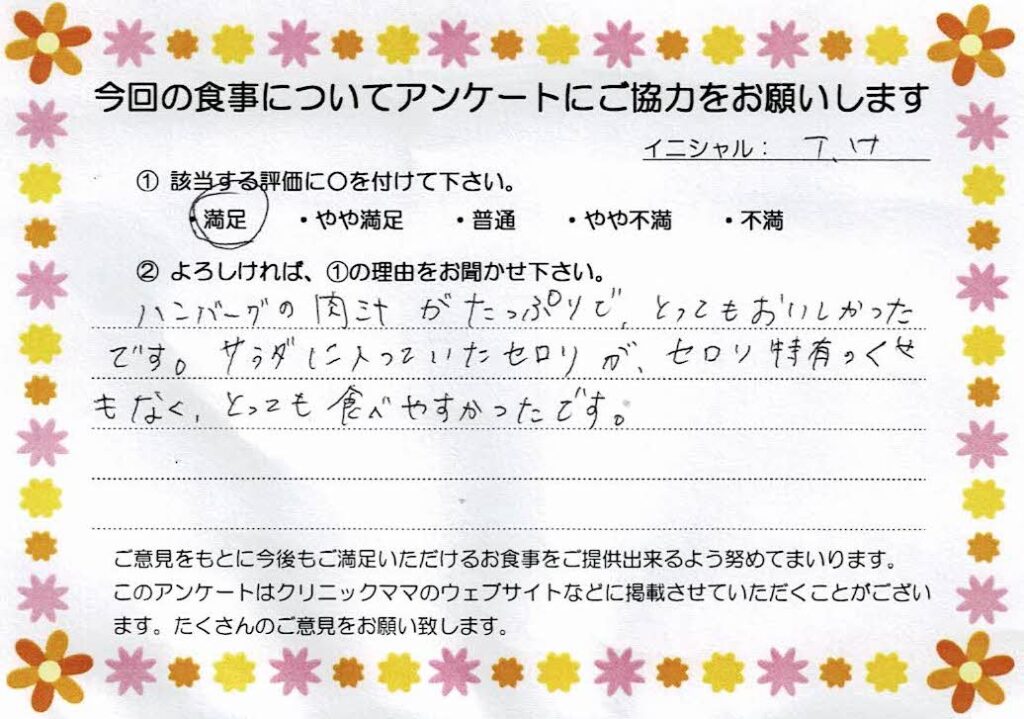 今回の食事についてアンケートにご協力をお願いします
イニシャル： T.H
① 該当する評価に○を付けて下さい。
・満足 ・やや満足 ・普通 ・やや不満 ・不満
② よろしければ、①の理由をお聞かせ下さい。
ハンバーグの肉汁がたっぷりで、とってもおいしかった
です。サラダに入っていたセロリが、セロリ特有のくせ
もなく、とっても食べやすかったです。
ご意見をもとに今後もご満足いただけるお食事をご提供出来るよう努めてまいります。
このアンケートはクリニックママのウェブサイトなどに掲載させていただくことがござい
ます。たくさんのご意見をお願い致します。